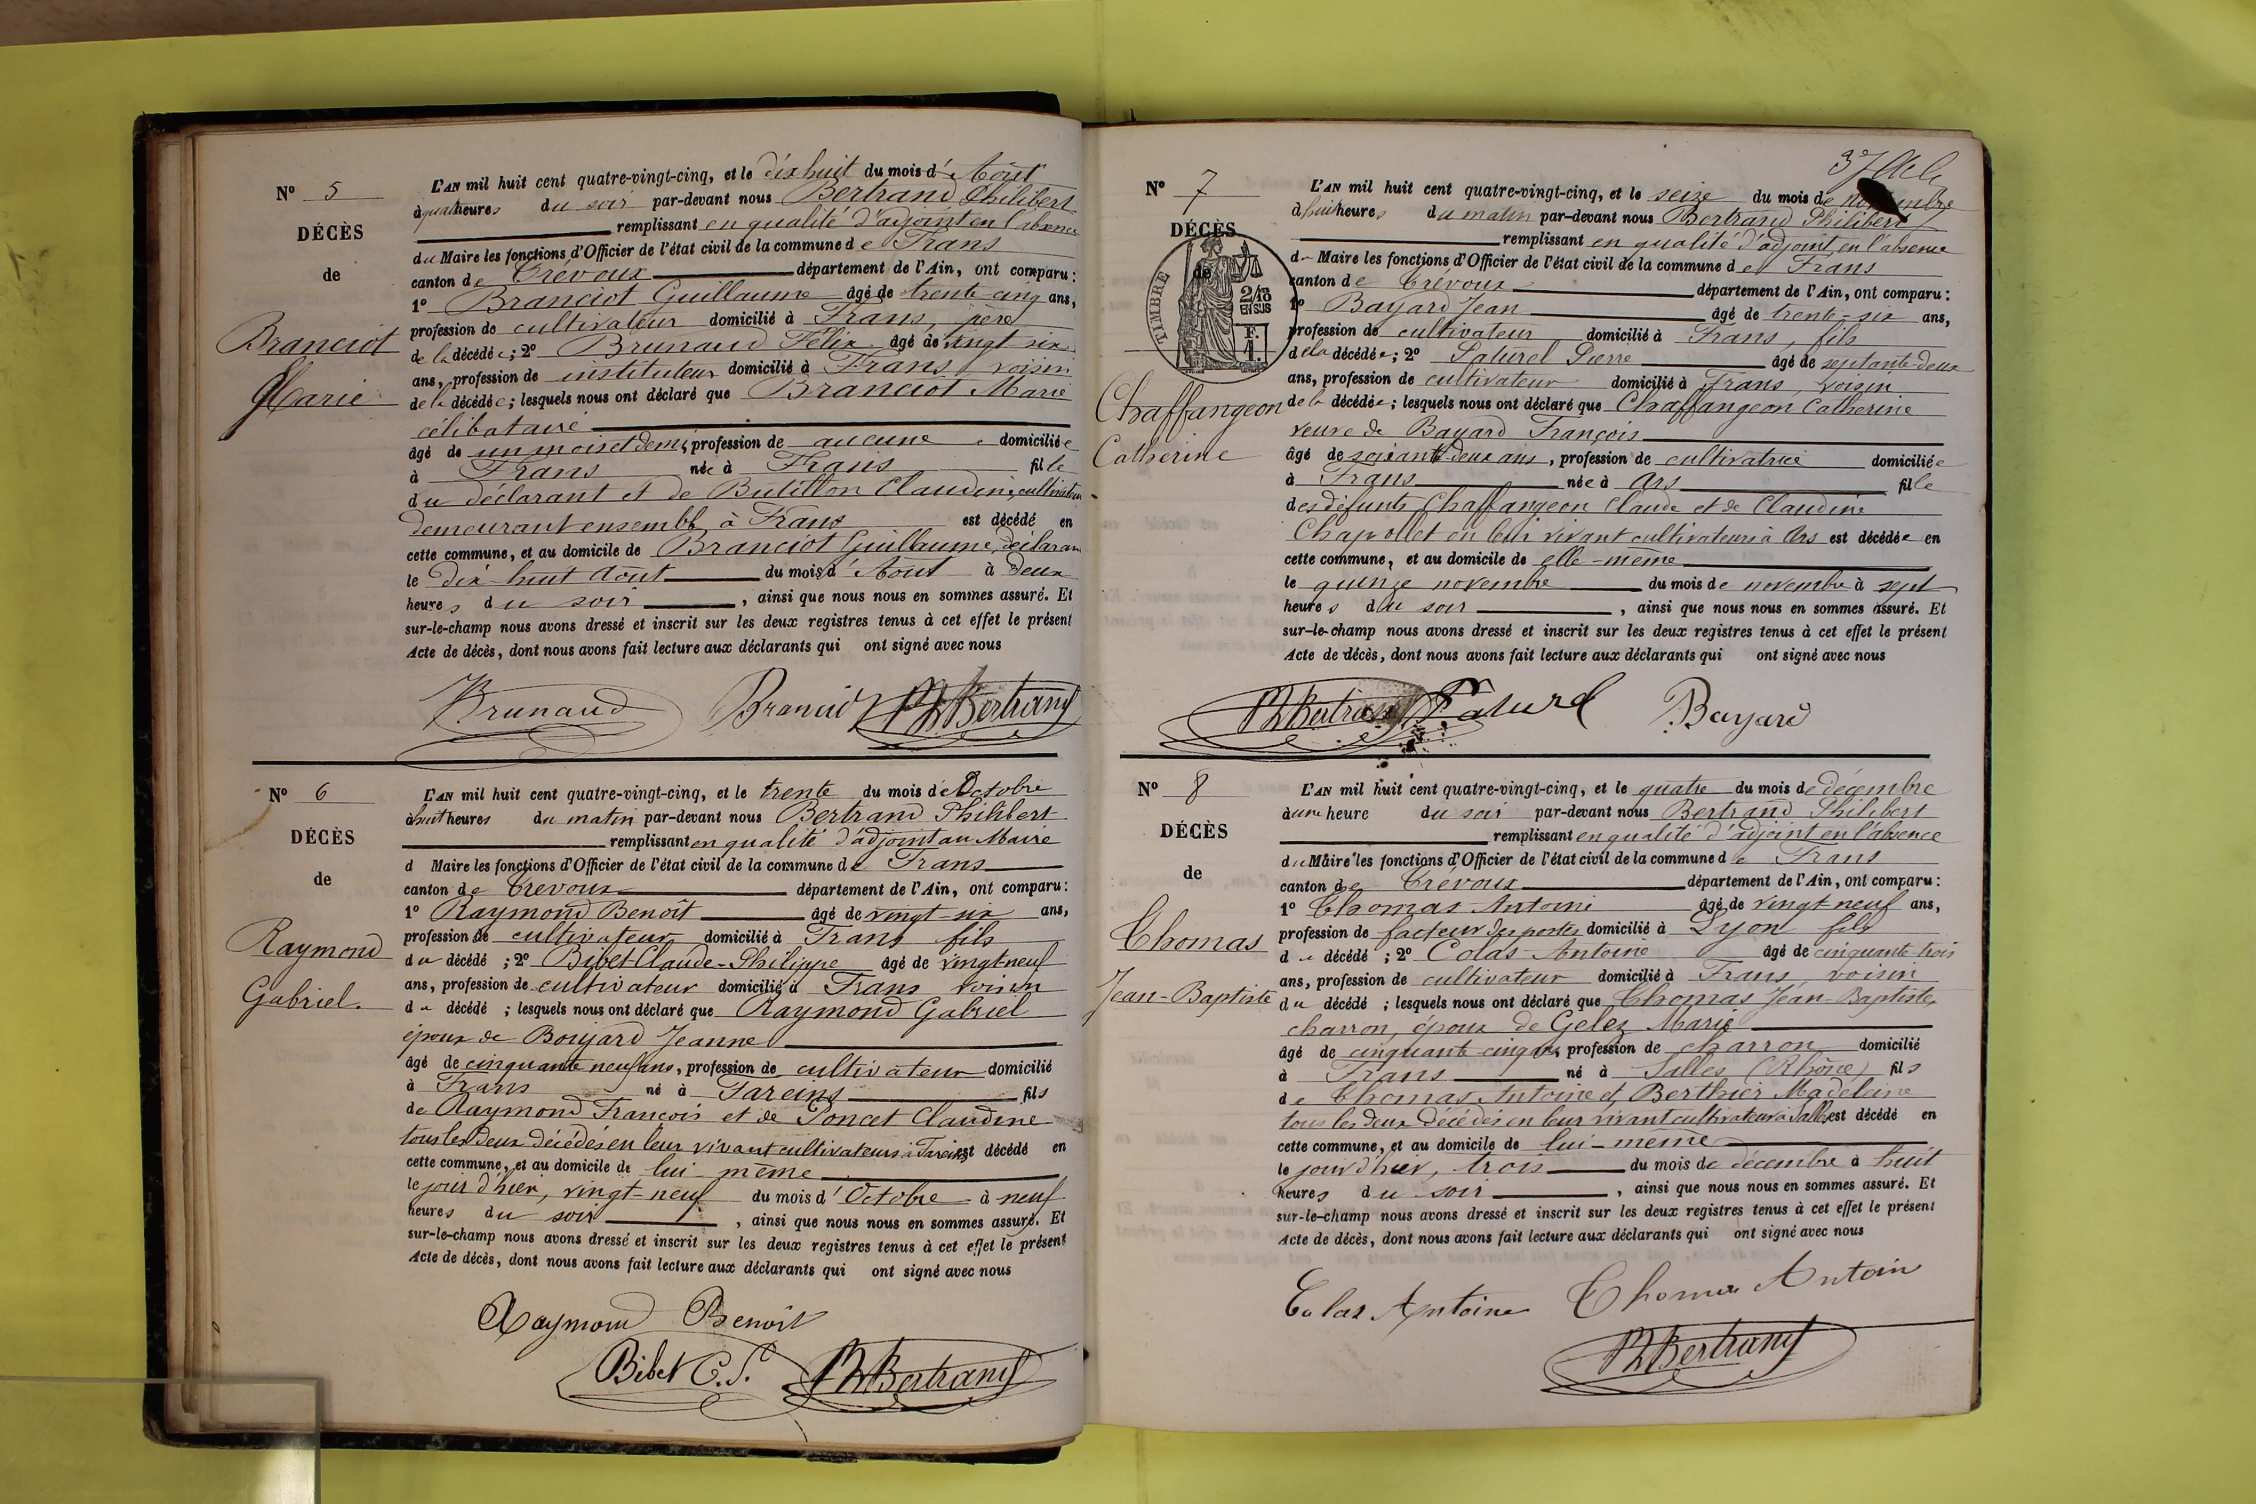 N° 5
DÉCÈS
de
Branciot
Marie
L'AN mil huit cent quatre-vingt-cinq, et le dix huit du mois d'Aout
à quatre heures du soir par-devant nous Bertrand Philibert
remplissant en qualité d'adjoint en l'absence
du Maire les fonctions d'Officier de l'état civil de la commune de Frans
canton de Trévoux département de l'Ain, ont comparu :
1° Branciot Guillaume âgé de trente cinq ans,
profession de cultivateur domicilié à Frans, père
de la décédée ; 2° Brunaud Félix âgé de vingt six
ans, profession de instituteur domicilié à Frans, voisin
de la décédée ; lesquels nous ont déclaré que Branciot Marie
célibataire
âgé de un mois et demi, profession de aucune domiciliée
à Frans née à Frans fille
du déclarant et de Butillon Claudine, cultivateurs
demeurant ensemble à Frans est décédé en
cette commune, et au domicile de Branciot Guillaume, déclarant
le dix-huit Août du mois d'Aout à deux
heures du soir , ainsi que nous nous en sommes assuré. Et
sur-le-champ nous avons dressé et inscrit sur les deux registres tenus à cet effet le présent
Acte de décès, dont nous avons fait lecture aux déclarants qui ont signé avec nous
Brunaud Branciot Ph Bertrand
N° 6
DÉCÈS
de
Raymond
Gabriel.
L'AN mil huit cent quatre-vingt-cinq, et le trente du mois de Octobre
à huit heures du matin par-devant nous Bertrand Philibert
remplissant en qualité d'adjoint au Maire
d Maire les fonctions d'Officier de l'état civil de la commune de Frans
canton de Trévoux département de l'Ain, ont comparu :
1° Raymond Benoît âgé de vingt-six ans,
profession de cultivateur domicilié à Frans fils
du décédé ; 2° Bibet Claude-Philippe âgé de vingt neuf
ans, profession de cultivateur domicilié à Frans voisin
du décédé ; lesquels nous ont déclaré que Raymond Gabriel
époux de Boujard Jeanne
âgé de cinquante neuf ans, profession de cultivateur domicilié
à Frans né à Fareins fils
de Raymond François et de Poncet Claudine
tous les deux décédés en leur vivant cultivateurs à Fareins est décédé en
cette commune, et au domicile de lui-même
le jour d'hier, vingt-neuf du mois d'Octobre à neuf
heures du soir , ainsi que nous nous en sommes assuré. Et
sur-le-champ nous avons dressé et inscrit sur les deux registres tenus à cet effet le présent
Acte de décès, dont nous avons fait lecture aux déclarants qui ont signé avec nous
Raymond Benoit
Bibet C. P. Ph Bertrand
N° 7
DÉCÈS
de
TIMBRE
2/10
EN SUS
F.
1.
Chaffangeon
Catherine
L'AN mil huit cent quatre-vingt-cinq, et le seize du mois de novembre
à huit heures du matin par-devant nous Bertrand Philibert
remplissant en qualité d'adjoint en l'absence
du Maire les fonctions d'Officier de l'état civil de la commune de Frans
canton de Trévoux département de l'Ain, ont comparu :
1° Bayard Jean âgé de trente-six ans,
profession de cultivateur domicilié à Frans, fils
de la décédée ; 2° Paturel Pierre âgé de septante-deux
ans, profession de cultivateur domicilié à Frans, voisin
de la décédée ; lesquels nous ont déclaré que Chaffangeon Catherine
veuve de Bayard François
âgé de soixante-deux ans, profession de cultivatrice domiciliée
à Frans née à Ars fille
des défunts Chaffangeon Claude et de Claudine
Chapollet en leur vivant cultivateurs à Ars est décédée en
cette commune, et au domicile de elle-même
le quinze novembre du mois de novembre à sept
heures du soir , ainsi que nous nous en sommes assuré. Et
sur-le-champ nous avons dressé et inscrit sur les deux registres tenus à cet effet le présent
Acte de décès, dont nous avons fait lecture aux déclarants qui ont signé avec nous
Ph Bertrand Paturel Bayard
N° 8
DÉCÈS
de
Thomas
Jean-Baptiste
L'AN mil huit cent quatre-vingt-cinq, et le quatre du mois de décembre
à une heure du soir par-devant nous Bertrand Philibert
remplissant en qualité d'adjoint en l'absence
du Maire les fonctions d'Officier de l'état civil de la commune de Frans
canton de Trévoux département de l'Ain, ont comparu :
1° Thomas Antoine âgé de vingt-neuf ans,
profession de facteur des postes domicilié à Lyon fils
du décédé ; 2° Colas Antoine âgé de cinquante-trois
ans, profession de cultivateur domicilié à Frans, voisin
du décédé ; lesquels nous ont déclaré que Thomas Jean-Baptiste,
charron, époux de Gelez Marie
âgé de cinquante-cinq ans, profession de charron domicilié
à Frans né à Salles (Rhône) fils
de Thomas Antoine et Berthier Madeleine
tous les deux décédés en leur vivant cultivateurs à Salles est décédé en
cette commune, et au domicile de lui-même
le jour d'hier, trois du mois de décembre à huit
heures du soir , ainsi que nous nous en sommes assuré. Et
sur-le-champ nous avons dressé et inscrit sur les deux registres tenus à cet effet le présent
Acte de décès, dont nous avons fait lecture aux déclarants qui ont signé avec nous
Colas Antoine Thomas Antoin
Ph Bertrand